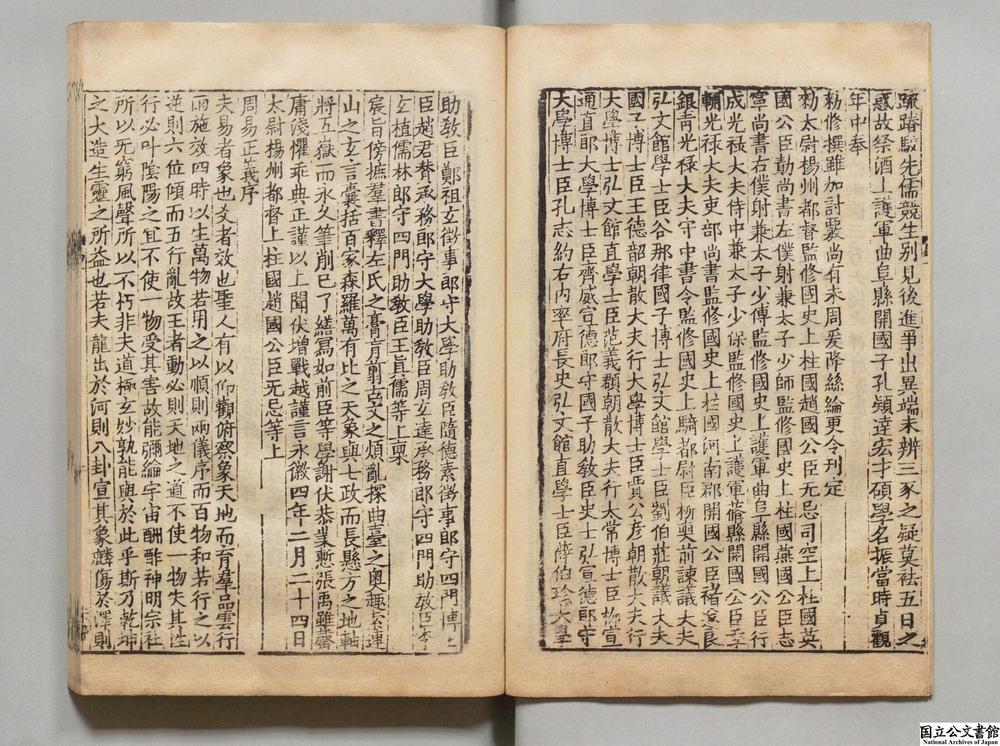 疏踳駮先儒競生别見後進爭出異端未辨三豕之疑莫袪五日之
惑故祭酒上護軍曲阜縣開國子孔穎達宏才碩學名振當時貞觀
年中奉
勑修撰雖加討覈尚有未周爰降絲綸更令刊定
勑太尉揚州都督監修國史上柱國趙國公臣无忌司空上柱國英
國公臣勣尚書左僕射兼太子少師監修國史上柱國燕國公臣志
寧尚書右僕射兼太子少傅監修國史上護軍曲阜縣開國公臣行
成光禄大夫侍中兼太子少保監修國史上護軍蓨縣開國公臣季
輔光禄大夫吏部尚書監修國史上柱國河南郡開國公臣褚遂良
銀青光禄大夫守中書令監修國史上騎都尉臣柳奭前諫議大夫
弘文館學士臣谷那律國子博士弘文館學士臣劉伯莊朝議大夫
國子博士臣王德韶朝散大夫行大學博士臣賈公彦朝散大夫行
大學博士弘文館直學士臣范義頵朝散大夫行太常博士臣柳宣
通直郎大學博士臣齊威宣德郎守國子助敎臣史士弘宣德郎守
大學博士臣孔志約右内率府長史弘文館直學士臣薛伯珍大學
助敎臣鄭祖玄徵事郎守大學助敎臣隨德素徵事郎守四門博士
臣趙君贊承務郎守大學助敎臣周玄達承務郎守四門助敎臣李
玄植儒林郎守四門助敎臣王眞儒等上稟
宸旨傍摭羣書釋左氏之膏肓翦古文之煩亂探曲臺之奥趣索連
山之玄言囊括百家森羅萬有比之天象與七政而長懸方之地軸
將五嶽而永久筆削已了繕冩如前臣等學謝伏恭業慙張禹雖罄
庸淺懼乖典正謹以上聞伏增戰越謹言永徽四年二月二十四日
太尉揚州都督上柱國趙國公臣无忌等上
周易正義序
夫易者象也爻者效也聖人有以仰觀俯察象天地而育羣品雲行
雨施效四時以生萬物若用之以順則兩儀序而百物和若行之以
逆則六位傾而五行亂故王者動必則天地之道不使一物失其性
行必叶陰陽之冝不使一物受其害故能彌綸宇宙酬酢神明宗社
所以无窮風聲所以不朽非夫道極玄妙孰能與於此乎斯乃乾坤
之大造生靈之所益也若夫龍出於河則八卦宣其象麟傷於澤則
国立公文書館
National Archives of Japan